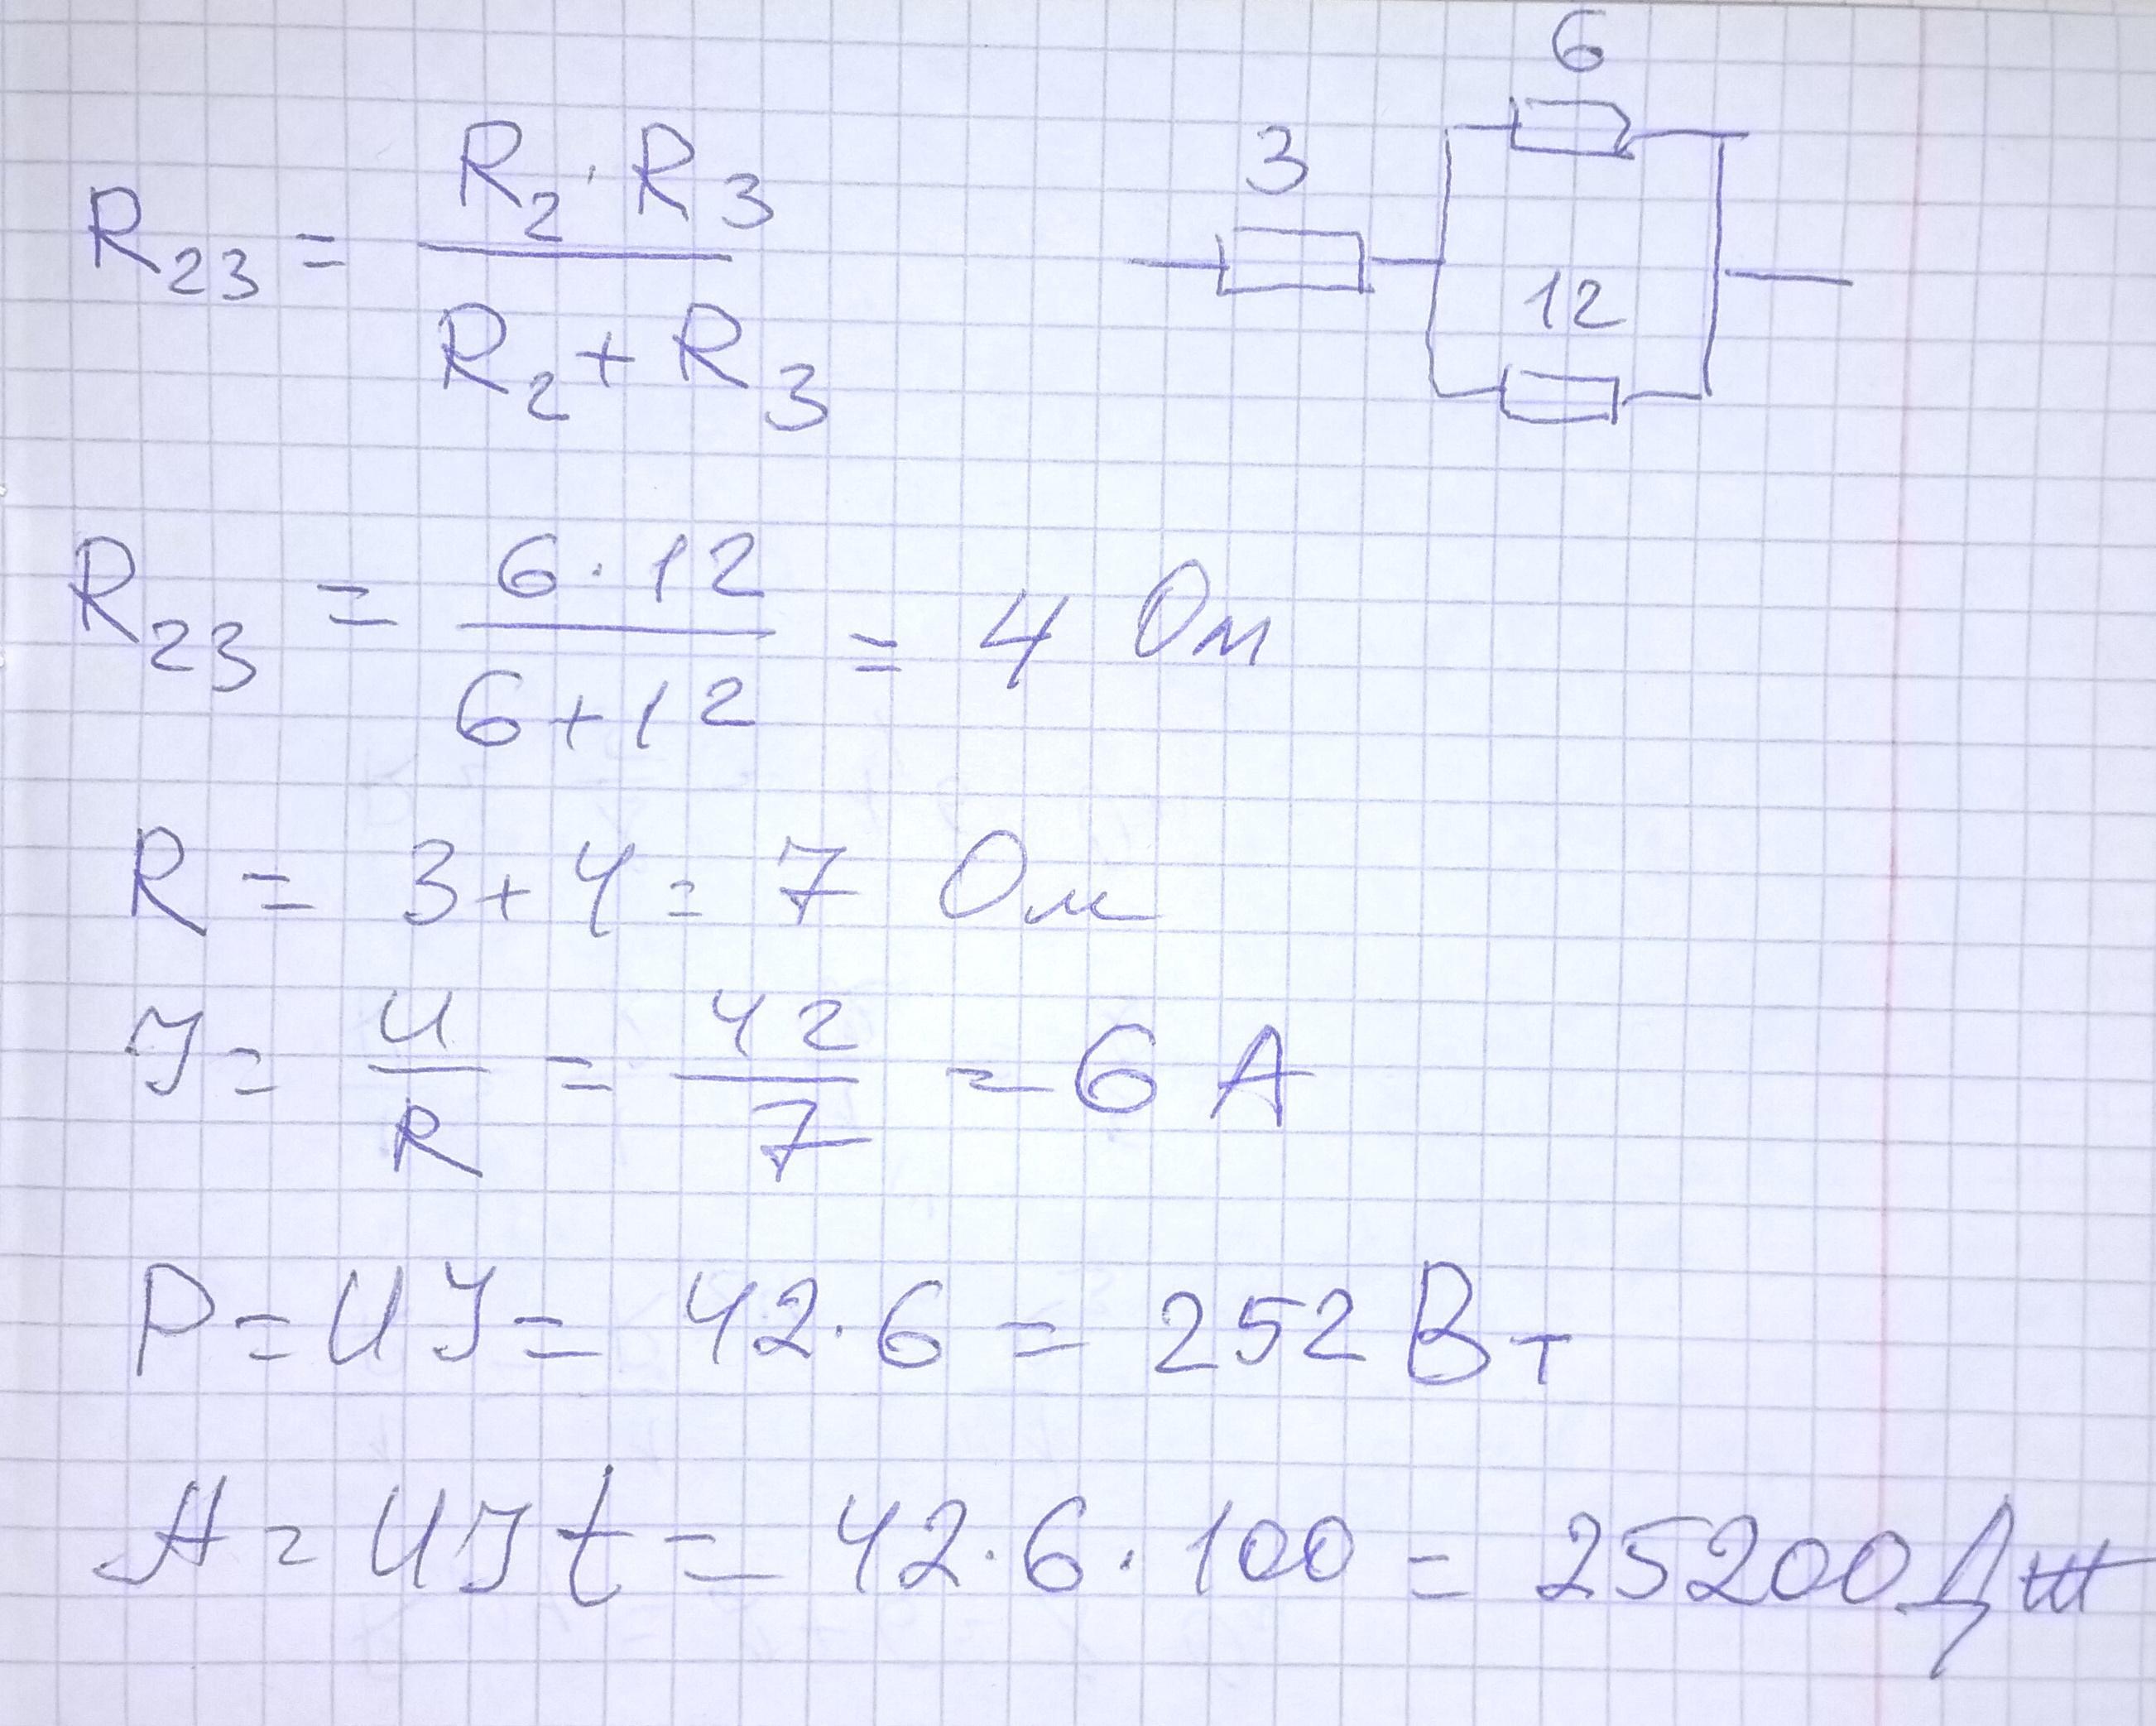 R₂₃ = (R₂ · R₃) / (R₂ + R₃)
3
6
12
R₂₃ = (6 · 12) / (6 + 12) = 4 Ом
R = 3 + 4 = 7 Ом
I = U / R = 42 / 7 = 6 А
P = UI = 42 · 6 = 252 Вт
A = UIt = 42 · 6 · 100 = 25200 Дж